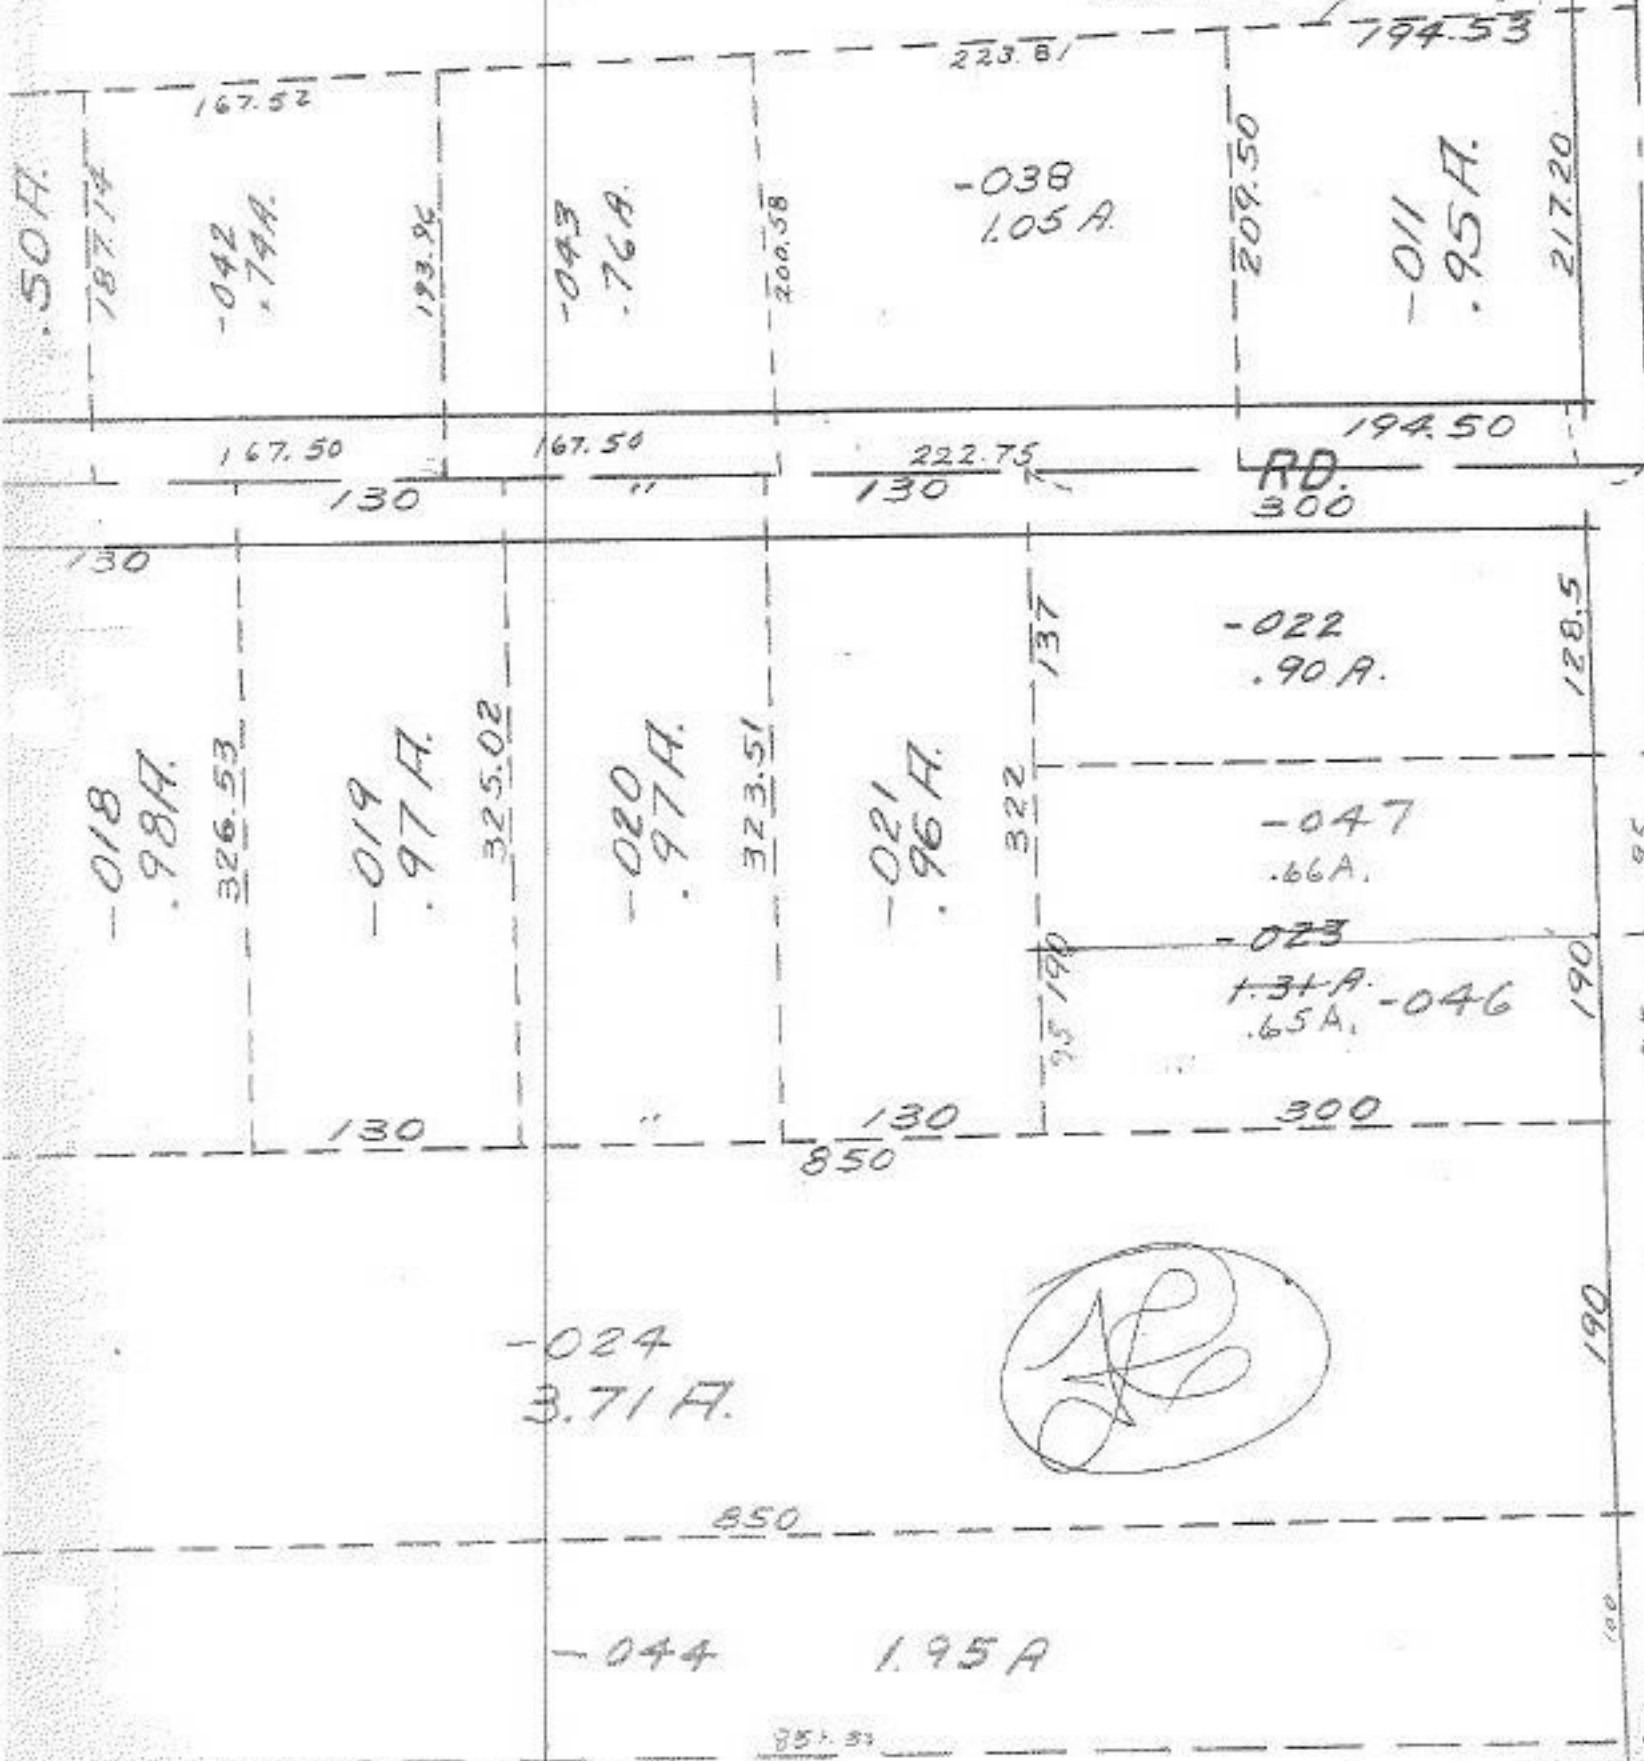 194.53
223.81
167.52
.50 A.
187.14
-042
.74 A.
193.96
-043
.76 A.
200.58
-038
1.05 A.
209.50
-011
.95 A.
217.20
167.50
167.50
222.75
194.50
RD.
130
"
130
300
130
-018
.98 A.
326.53
-019
.97 A.
325.02
-020
.97 A.
323.51
-021
.96 A.
137
322
-022
.90 A.
128.5
-047
.66 A.
-023
1.31 A.
.65 A. -046
190
95
190
95
130
"
130
300
850
-024
3.71 A.
190
850
-044 1.95 A
100